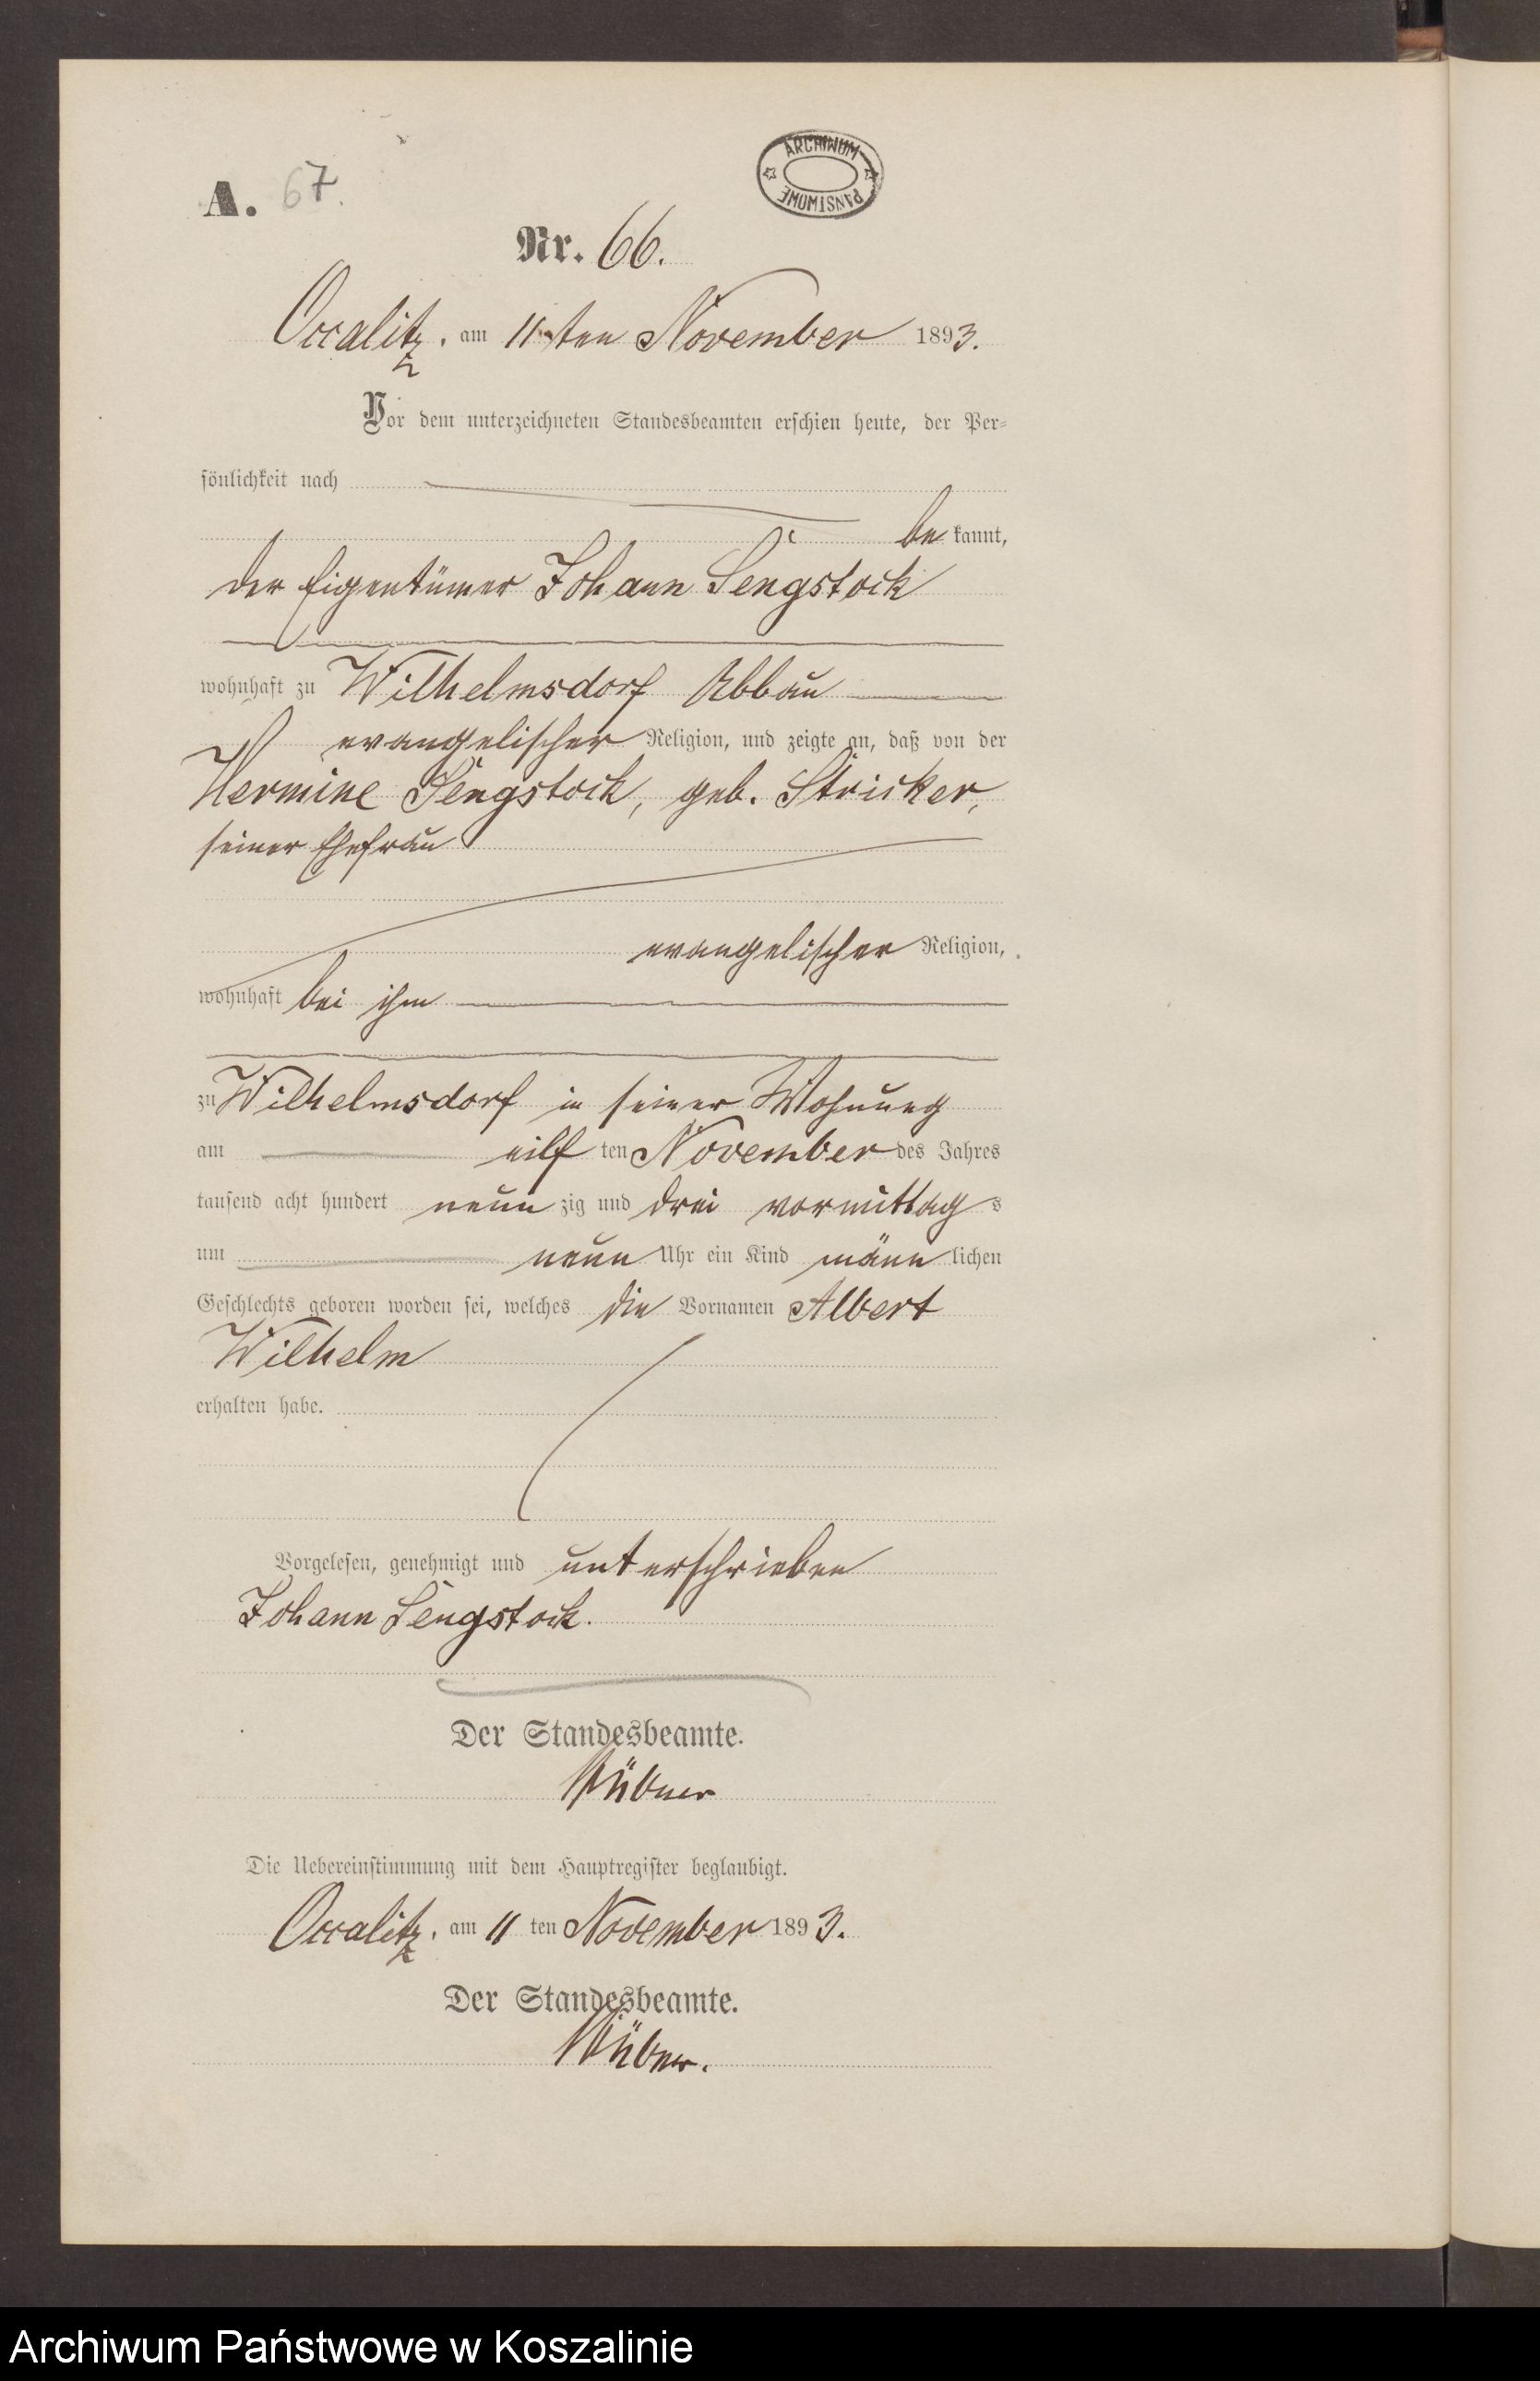 A. 67.
ARCHIWUM PAŃSTWOWE
Nr. 66.
Occalitz, am 11ten November 1893.
Vor dem unterzeichneten Standesbeamten erschien heute, der Per=
sönlichkeit nach
be kannt,
der Eigentümer Johann Sengstock
wohnhaft zu Wilhelmsdorf Abbau
evangelischer Religion, und zeigte an, daß von der
Hermine Sengstock, geb. Stricker,
seiner Ehefrau
evangelischer Religion,
wohnhaft bei ihm
zu Wilhelmsdorf in seiner Wohnung
am eilf ten November des Jahres
tausend acht hundert neun zig und drei vormittag s
um neun Uhr ein Kind männ lichen
Geschlechts geboren worden sei, welches die Vornamen Albert
Wilhelm
erhalten habe.
Vorgelesen, genehmigt und unterschrieben
Johann Sengstock.
Der Standesbeamte.
Die Uebereinstimmung mit dem Hauptregister beglaubigt.
Occalitz, am 11 ten November 1893.
Der Standesbeamte.
Archiwum Państwowe w Koszalinie